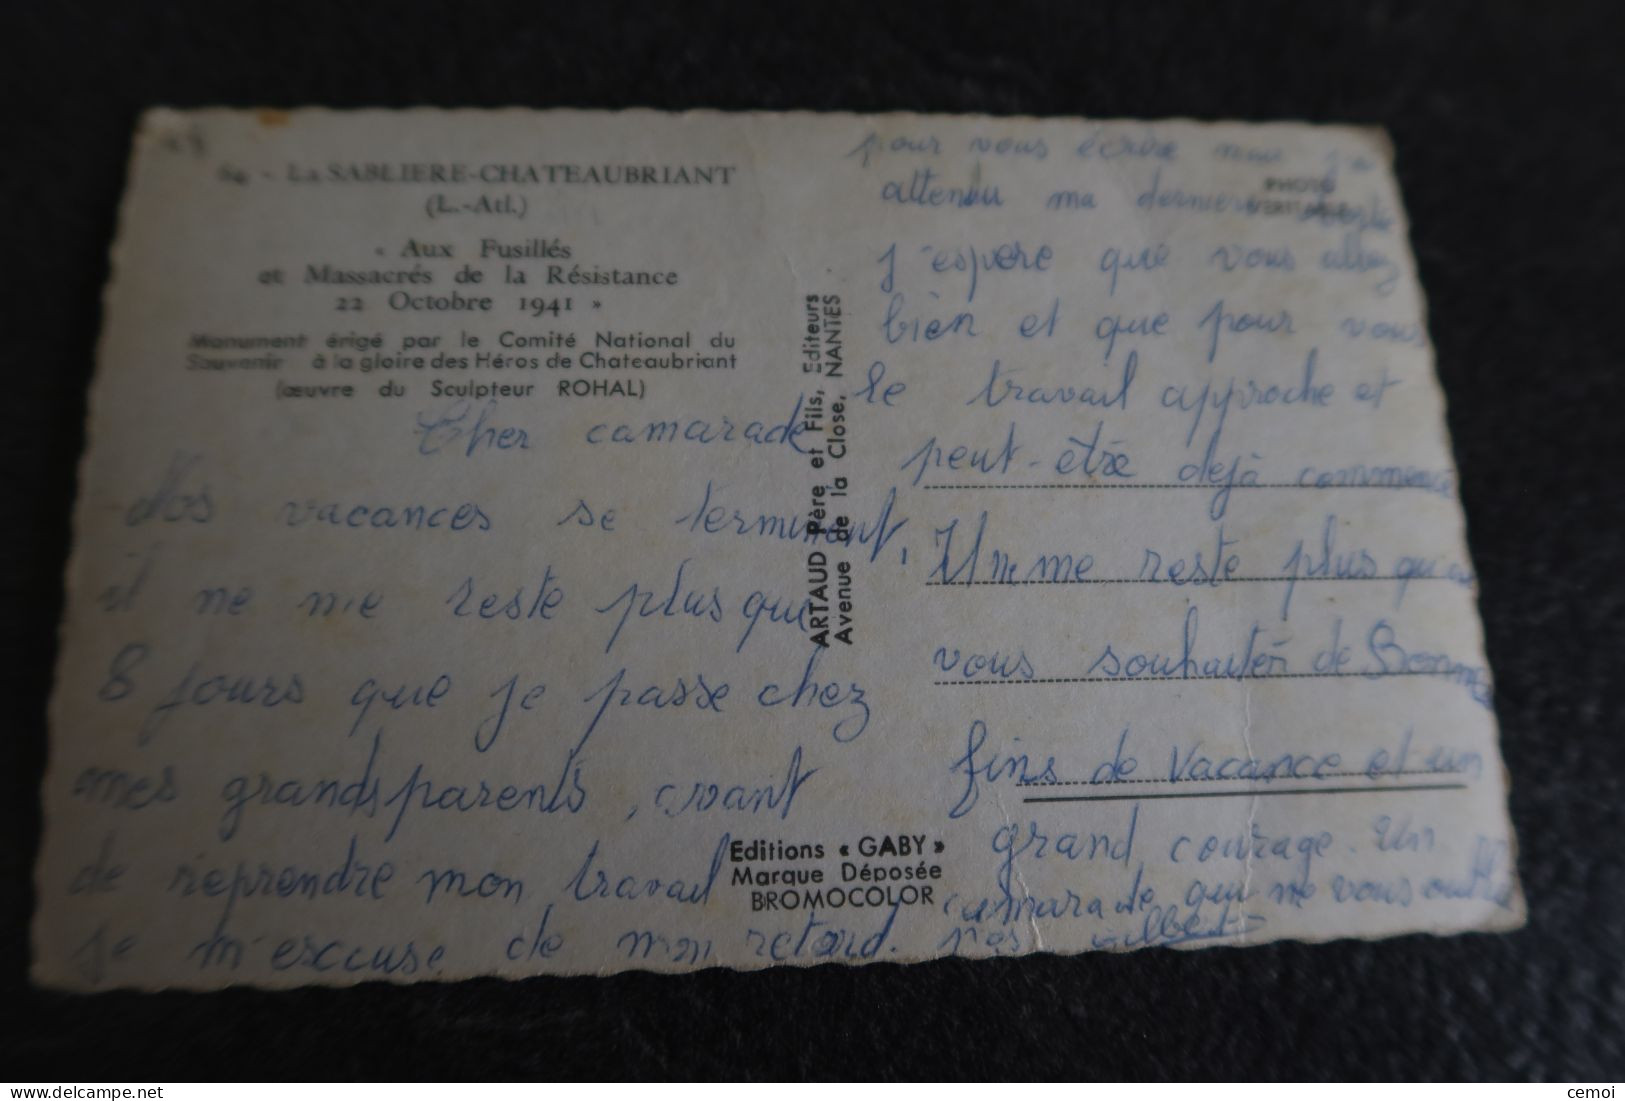 64 - La SABLIERE-CHATEAUBRIANT
(L.-Atl.)
« Aux Fusillés
et Massacrés de la Résistance
22 Octobre 1941 »
Monument érigé par le Comité National du
Souvenir à la gloire des Héros de Chateaubriant
(œuvre du Sculpteur ROHAL)
Cher camarade
Nos vacances se terminent,
il ne me reste plus que
8 jours que je passe chez
mes grands parents, avant
de reprendre mon travail
je m'excuse de mon retard
ARTAUD Père et Fils, Editeurs
Avenue de la Close, NANTES
Editions « GABY »
Marque Déposée
BROMOCOLOR
PHOTO
VERITABLE
pour vous écrire mai j'ai
attenu ma dernière
j'espère que vous allez
bien et que pour vous
le travail approche et
peut-être dejà commence
Il ne me reste plus qu'a
vous souhaiter de Bonnes
fins de vacance et un
grand courage. Un
camarade qui ne vous oublie
pas. Gilbert
cemoi
delcampe.net